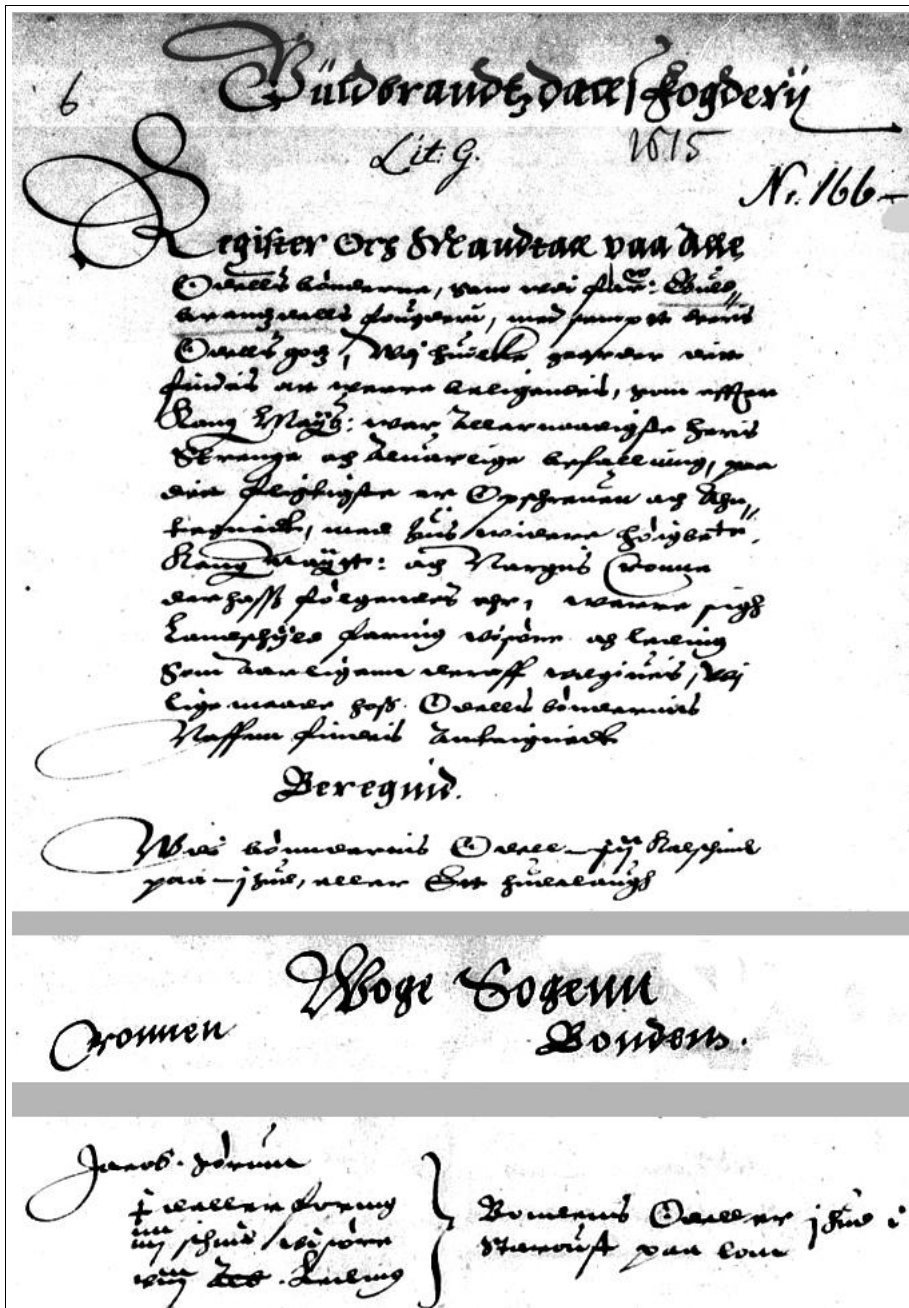 6
Guldbrandtzdalls fogderij
Lit: G. 1615
Nr. 166
Register Och Mandtall paa Alle
Odells bönderne, som udi for: Guld//
brantzdalls fougderii, med sampt deris
Odells godz, Udj huilcke gaarder det
findis at werre beligendis, som effter
Kong: Maytz: wor Allernaadigste Heris
Strenge och Aluorlige befallning, paa
det fligtigste er Opschreuen och Ahn//
tegnidt, med huis widere höigbete.
Kong Maytt: och Norgis Cronne
der hoss fölgendes ehr, werre sigh
Landschyld foring wisöre och leding
Som aarligenn deroff udgiuis, Udj
lige maade hoss Odells böndernis
Naffnn findis Anteignidt
Beregnid.
Wdj bönndernis Odell iij Kalschind
paa j hud, eller Ett huudelaugh
Woge Sogenn
Cronnen Bonden.
Jacob Sörum
j daller foring
iiij schind wisöre
viij Leding
Bondens Odell er j hud i
paa Lom